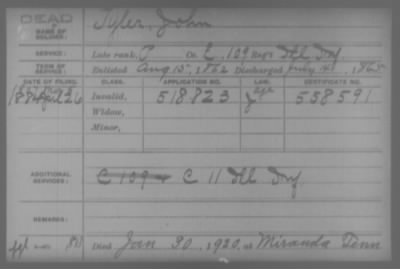 DEAD
NAME OF SOLDIER: Tyler, John
SERVICE: Late rank, P Co. E, 109 Reg't Ill Inf.
TERM OF SERVICE: Enlisted Aug 15, 1862 Discharged 1865
DATE OF FILING. CLASS. APPLICATION NO. LAW. CERTIFICATE NO.
188 26 Invalid, 518823 558591
Widow,
Minor,
ADDITIONAL SERVICES: C 109 C 11 Ill Inf
REMARKS:
Died Jan 30, 1920, at Miranda Tenn